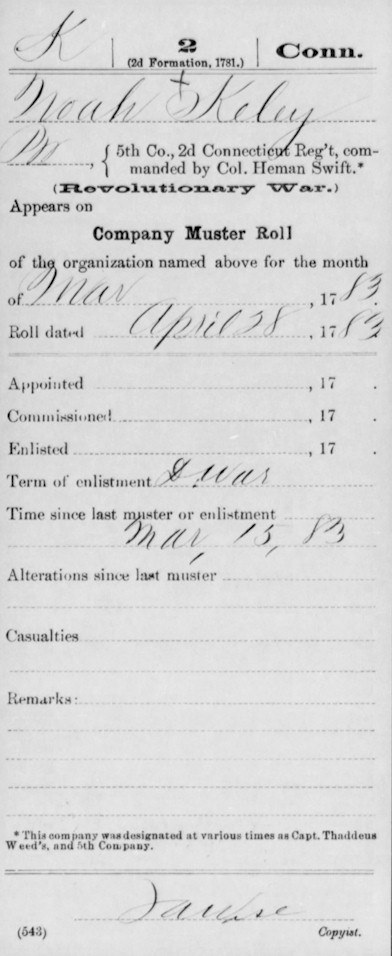 K | 2 | Conn.
(2d Formation, 1781.)
Noah + Keley
5th Co., 2d Connecticut Reg't, com-
manded by Col. Heman Swift.*
(Revolutionary War.)
Appears on
Company Muster Roll
of the organization named above for the month
of Mar, 1783.
Roll dated April 28, 1783
Appointed , 17 .
Commissioned , 17 .
Enlisted , 17 .
Term of enlistment D. War
Time since last muster or enlistment
Mar, 15, 83
Alterations since last muster
Casualties
Remarks:
* This company was designated at various times as Capt. Thaddeus
Weed's, and 5th Company.
(543) Copyist.